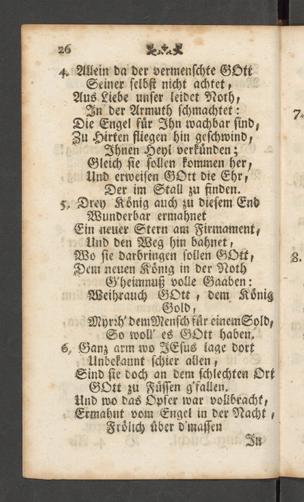 26
4. Allein da der vermenschte GOtt
Seiner selbst nicht achtet,
Aus Liebe unser leidet Noth,
In der Armuth schmachtet:
Die Engel für Ihn wachbar sind,
Zu Hirten fliegen hin geschwind,
Ihnen Heyl verkünden;
Gleich sie sollen kommen her,
Und erweisen GOtt die Ehr,
Der im Stall zu finden.
5. Drey König auch zu diesem End
Wunderbar ermahnet
Ein neuer Stern am Firmament,
Und den Weg hin bahnet,
Wo sie darbringen sollen GOtt,
Dem neuen König in der Noth
G'heimnuß volle Gaaben:
Weihrauch GOtt, dem König
Gold,
Myrrh' dem Mensch für einem Sold,
So woll' es GOtt haben.
6. Ganz arm wo JEsus lage dort
Unbekannt schier allen,
Sind sie doch an dem schlechten Ort
GOtt zu Füssen g'fallen.
Und wo das Opfer war vollbracht,
Ermahnt vom Engel in der Nacht,
Frölich über d'massen
In
7.
8.